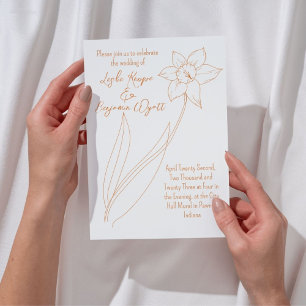 Please join us to celebrate
the wedding of
Leslie Knope
&
Benjamin Wyatt
April Twenty Second,
Two Thousand and
Twenty Three at Four in
the Evening, at the City
Hall Mural in Pawnee,
Indiana